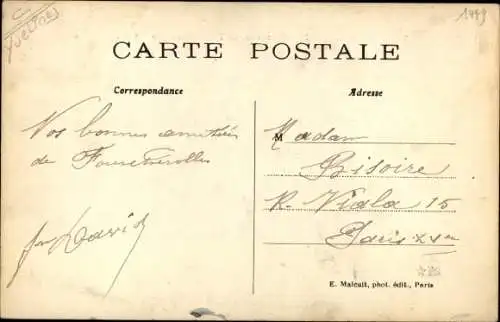 Yvelines
1449
CARTE POSTALE
Correspondance
Adresse
Nos bonnes amitiés
de Fourcherolles
David
M Madam
Risoire
R. Viala 15
Paris XVme
E. Malcuit, phot. édit., Paris